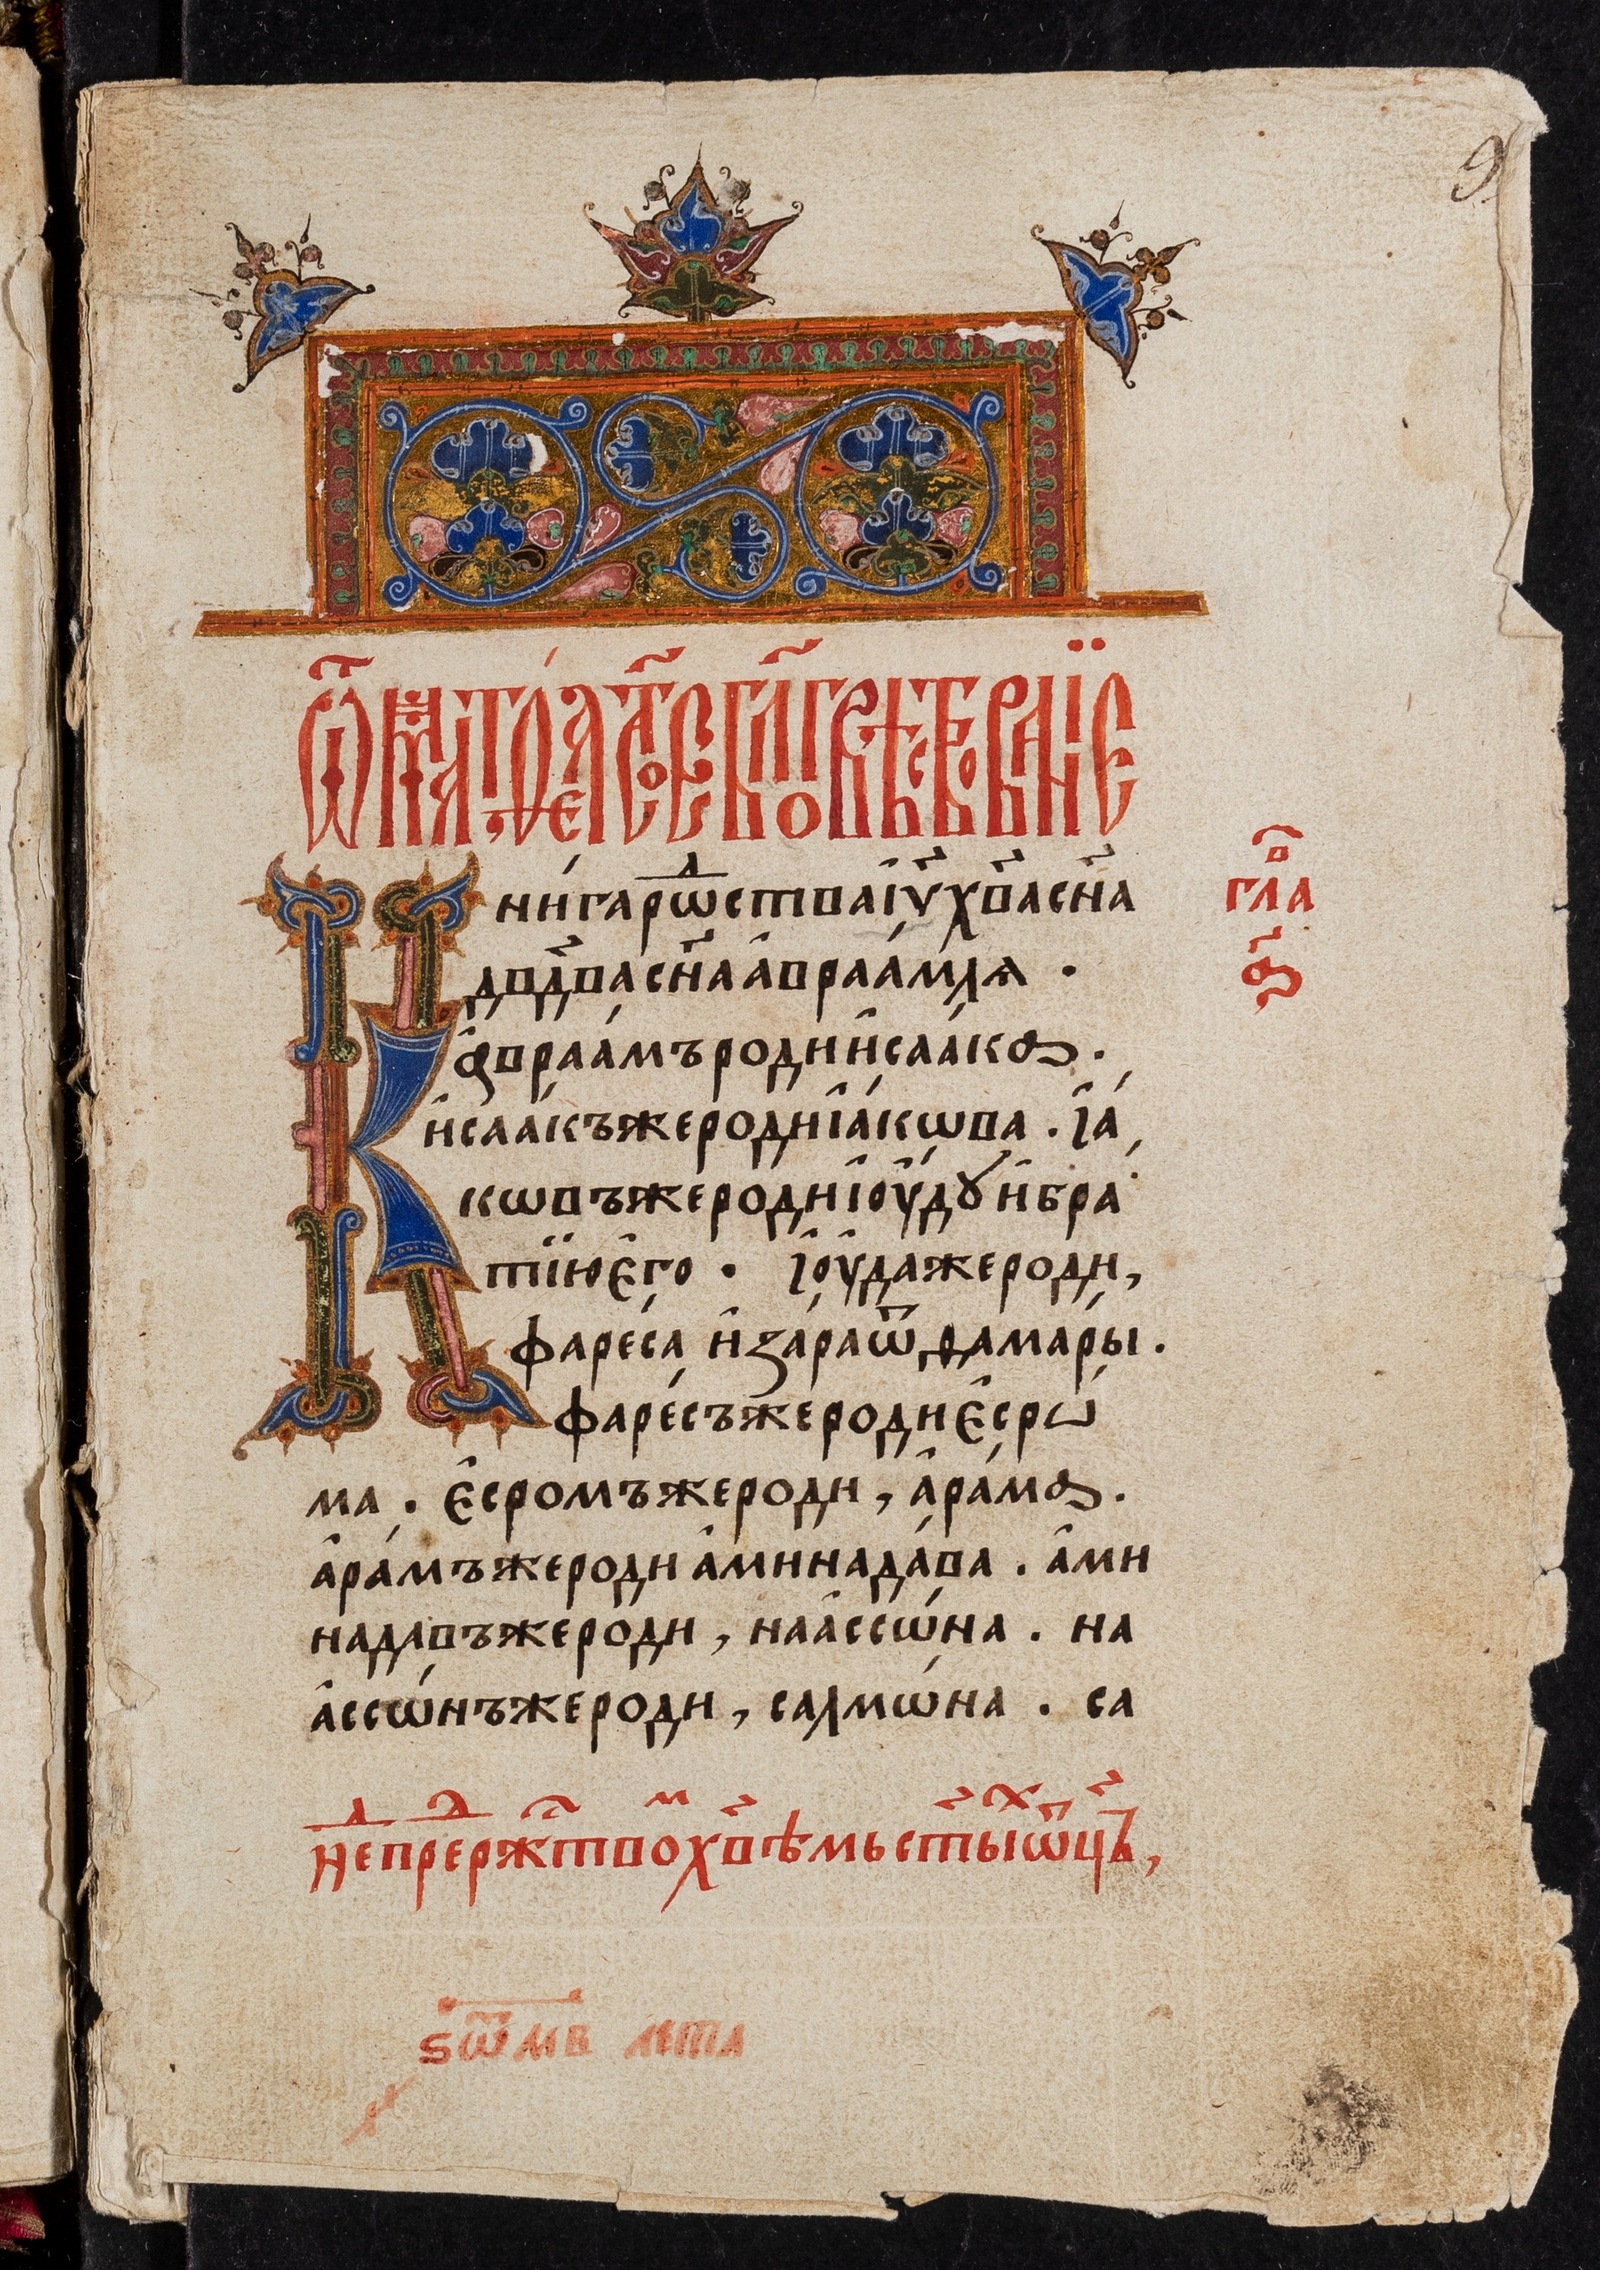 9
Ѿ Маѳеа ст҃ое бл҃говѣствованїе
Кни́га рѡⷣства і҆у҃ хв҃а сн҃а
дв҃два сн҃а а҆враа́млѧ ·
а҆враа́мъ роди и҆саа́ка .
и҆саа́къ же роди і҆а́кѡва . і҆а́
кѡвъ же роди і҆ꙋ҆́дꙋ и҆ бра
тїю є҆го̀ · і҆ꙋ҆да же роди ,
фаре́са и҆ зара ѿ ѳама́ры .
фаре́съ же роди є҆срѡ́
ма . є҆сромъ же роди , а҆ра́ма .
а҆ра́мъ же роди а҆минада́ва . а҆ми
надавъ же роди , наа҆ссѡ́на . на
а҆ссѡ́нъ же роди , салмѡ́на . са
гла́в
а҃
неⷣ преⷣ ржⷭ҇твоⷨ хв҃ѣмь ст҃ыⷯ ѿц҃ъ ,
ѕѿмв лѣта